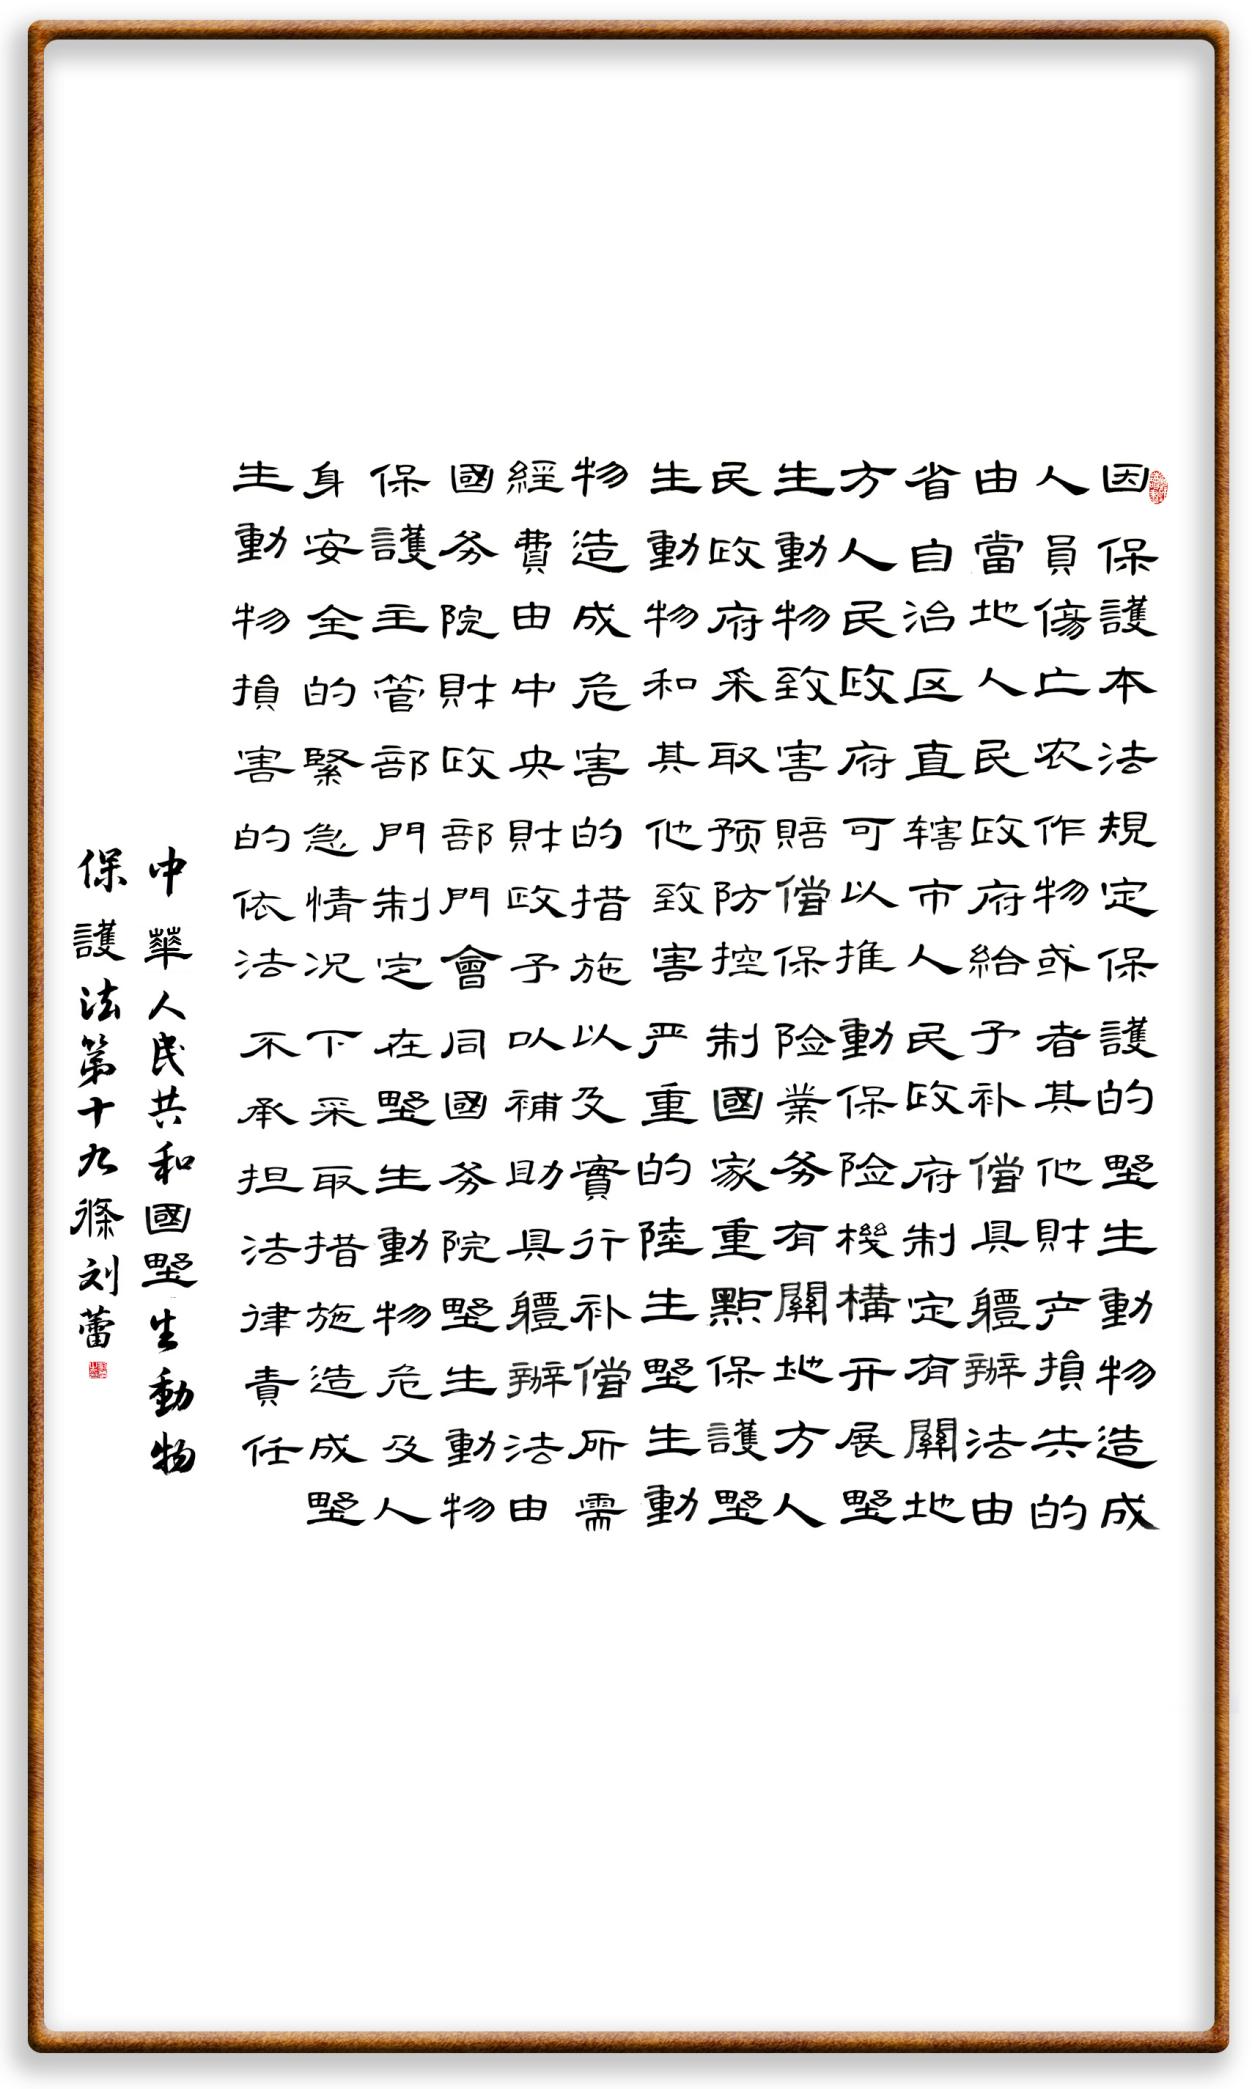 因保護本法規定保護的野生動物造成
人員傷亡农作物或者其他財产損失的
由當地人民政府給予补償具體辦法由
省自治区直辖市人民政府制定有關地
方人民政府可以推動保险機構开展野
生動物致害賠償保险業务有關地方人
民政府采取预防控制國家重點保護野
生動物和其他致害严重的陸生野生動
物造成危害的措施以及實行补償所需
經費由中央財政予以補助具體辦法由
國务院財政部門會同國务院野生動物
保護主管部門制定在野生動物危及人
身安全的緊急情况下采取措施造成野
生動物損害的依法不承担法律責任
中華人民共和國野生動物
保護法第十九條刘蕾